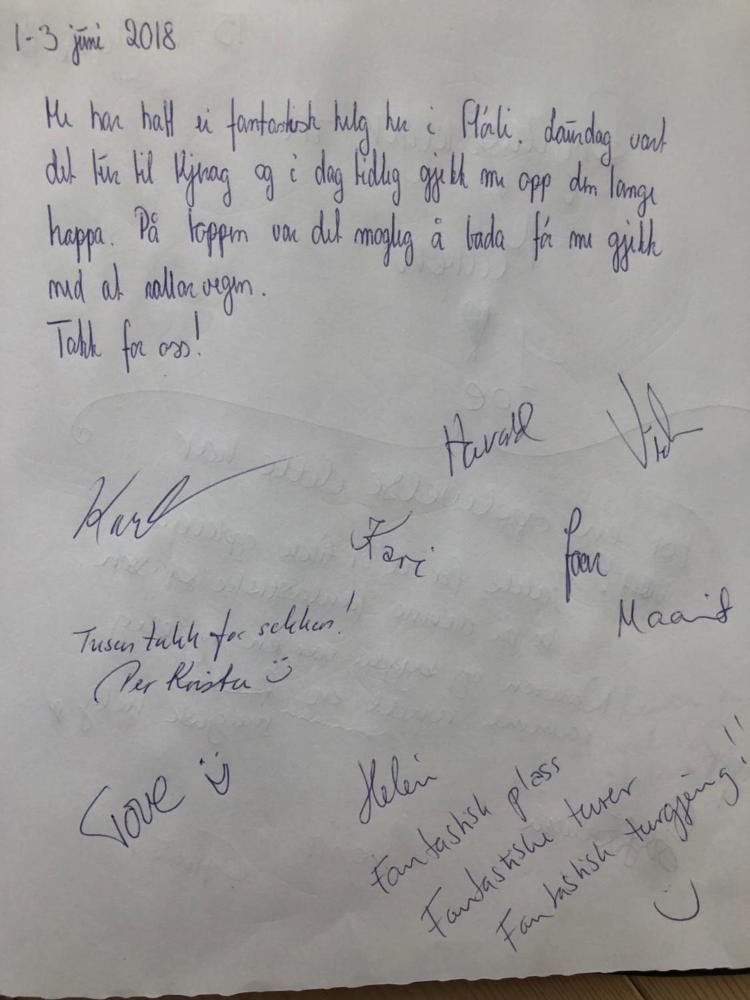 1-3 juni 2018
Me har hatt ei fantastisk helg her i Flórli. Laurdag vart
det tur til Kjerag og i dag tidleg gjekk me opp den lange
trappa. På toppen var det mogleg å bada før me gjekk
ned at rallarvegen.
Takk for oss!
Harald
Karl
Kari
Maarit
Tusen takk for sekken!
Per Kristen ☺
Tove ☺
Helén
Fantastisk plass
Fantastiske turer
Fantastisk turgjeng!!
☺